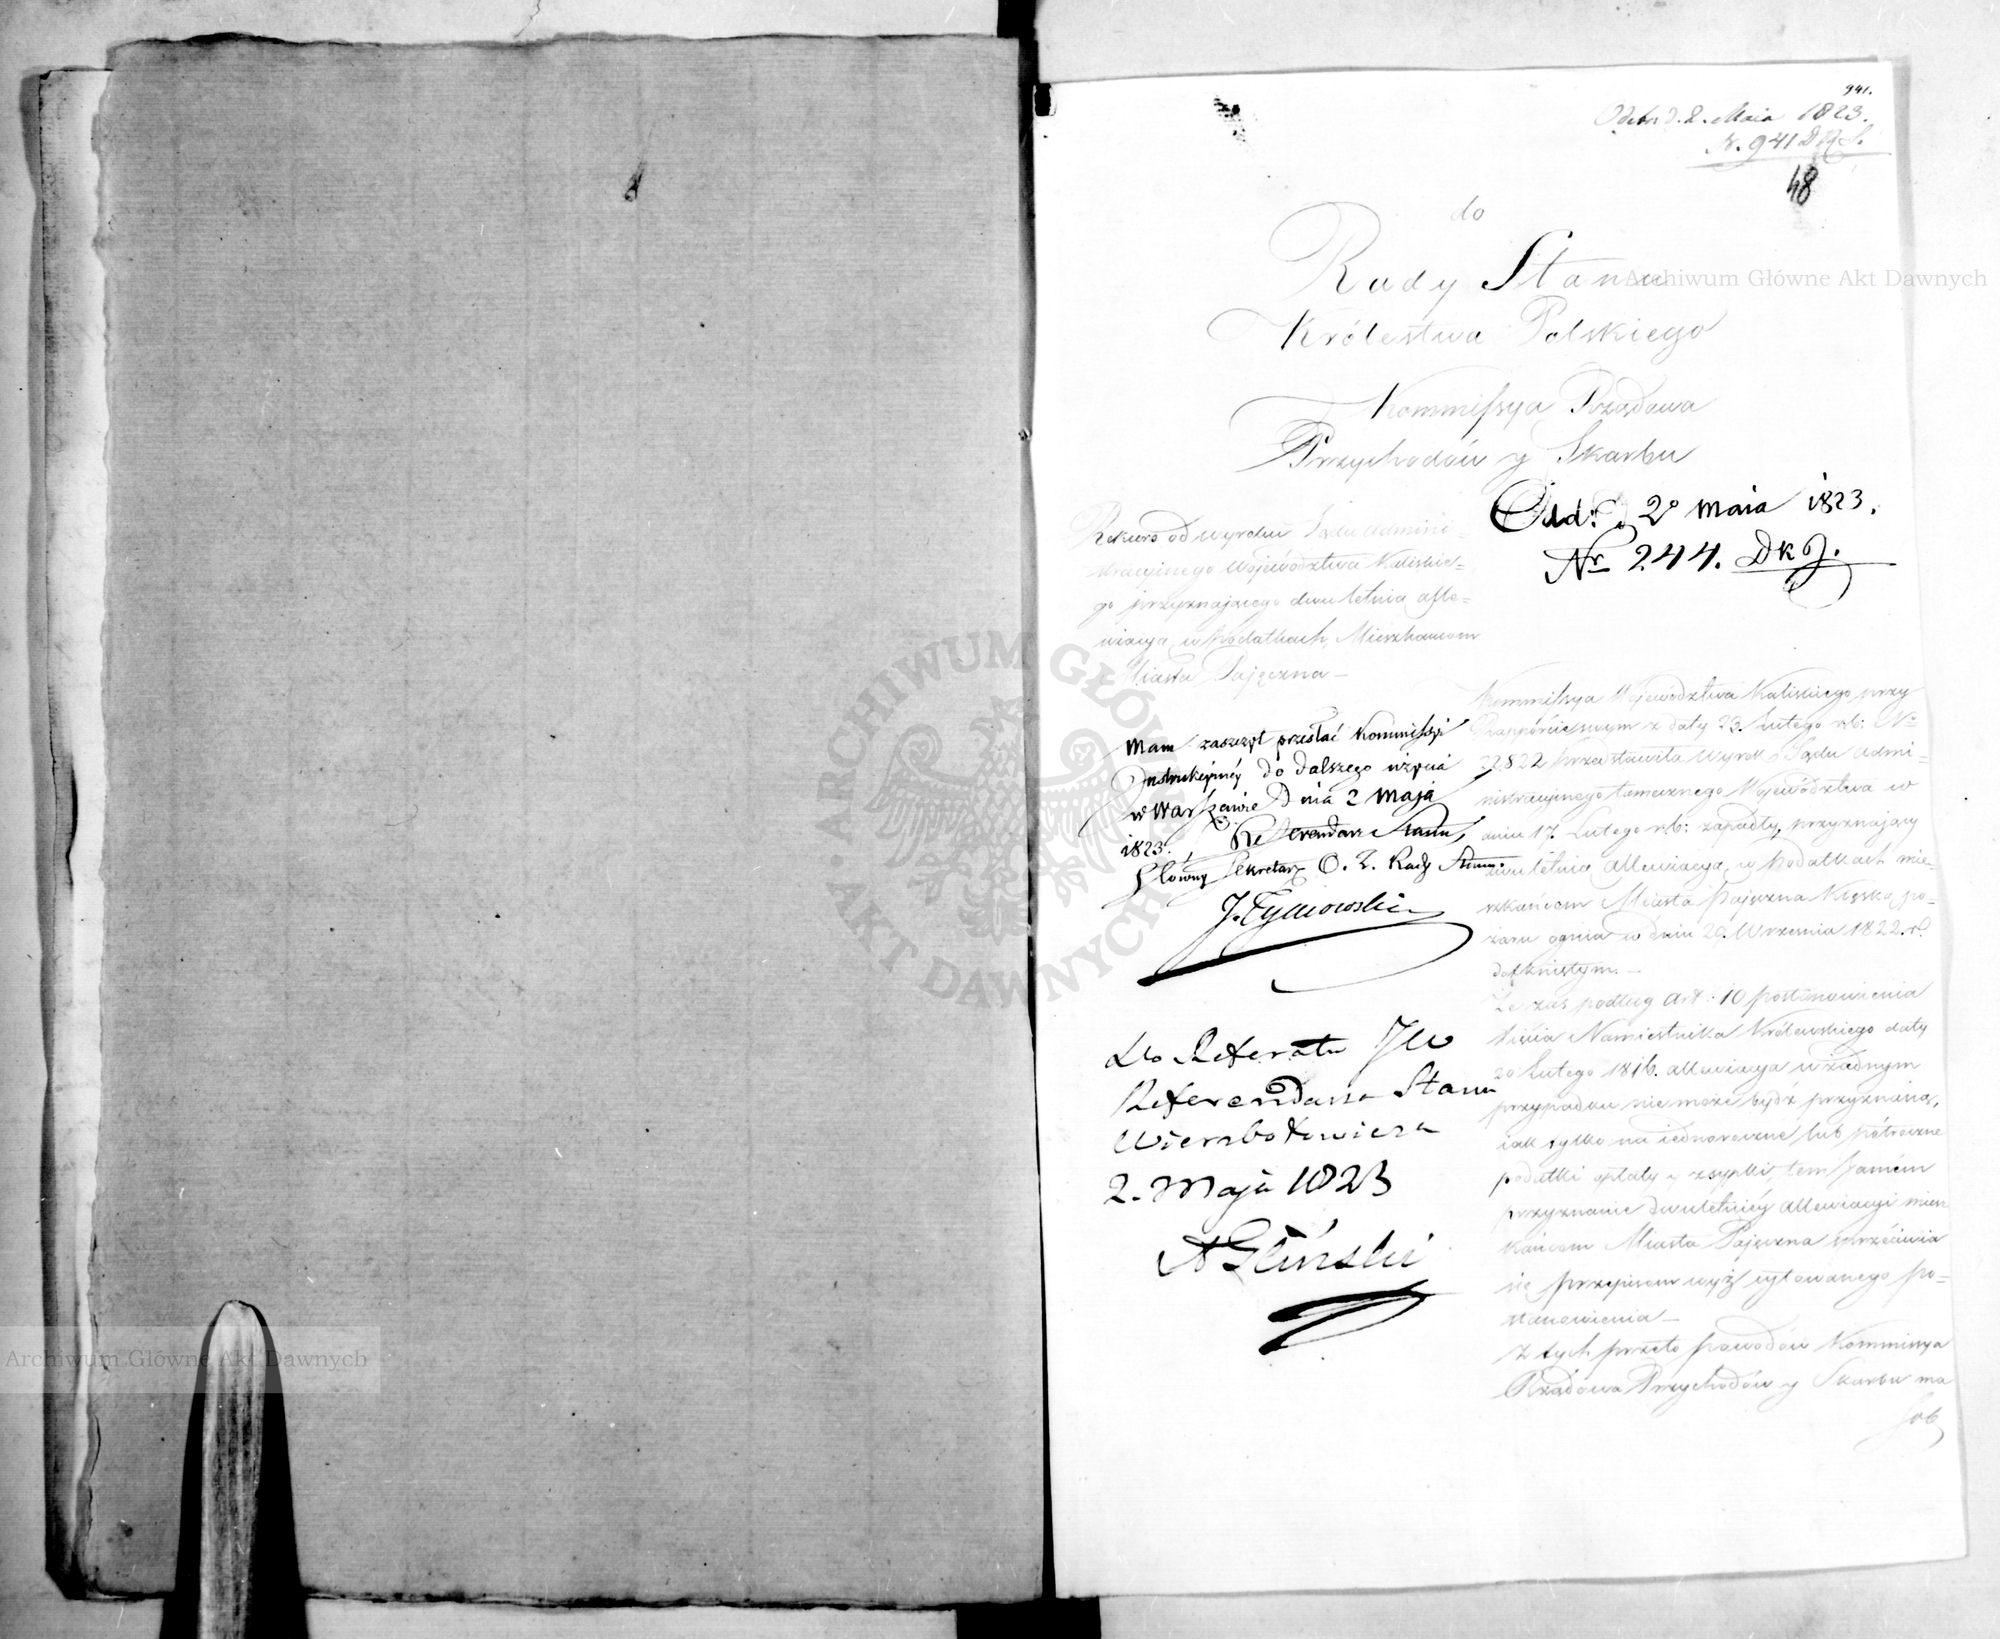 941.
Odebr. d. 2. Maia 1823.
N. 941 D.R.S.
48
do
Rady Stanu
Królestwa Polskiego
Kommissya Rządowa
Przychodów y Skarbu
Odd: d 2º Maia 1823.
Nr 244. DKJ.
Rekurs od wyroku Sądu Admini-
stracyinego Województwa Kaliskie-
go przyznającego dwuletnią alle-
wiacyą w podatkach Mieszkańcom
Miasta Pajęczna —
Mam zaszczyt przesłać Kommissyi
Instrukcyinéy do dalszego użycia
w Warszawie Dnia 2 Maja
1823. Referendarz Stanu,
Główny Sekretarz O. Z. Rady Stanu.
J. Tymowski
Do Referatu JW
Referendarza Stanu
Wierzbołowicza
2. Maja 1823
A Gliński
Kommissya Województwa Kaliskiego przy
Rapporcie swym z daty 23. Lutego r.b: No
22822 przedstawiła Wyrok Sądu Admi-
nistracyinego tamecznego Województwa w
dniu 17. Lutego r.b: zapadły, przyznający
dwuletnią allewiacyą w podatkach mie-
szkańcom Miasta Pajęczna klęską po-
żaru ognia w dniu 29. Września 1822. r.
dotkniętym. —
Że zaś podług Art: 10 postanowienia
Xięcia Namiestnika Królewskiego daty
20 Lutego 1816. allewiacya w żadnym
przypadku nie może bydź przyznaną,
iak tylko na iednoroczne lub półroczne
podatki opłaty y zsypki, tem samém
przyznanie dwuletniéy allewiacyi miesz-
kańcom Miasta Pajęczna sprzeciwia
się przepisom wyż cytowanego po-
stanowienia —
Z tych przeto powodów Kommissya
Rządowa Przychodów y Skarbu ma
Archiwum Główne Akt Dawnych
Archiwum Główne Akt Dawnych
ARCHIWUM GŁÓWNE AKT DAWNYCH